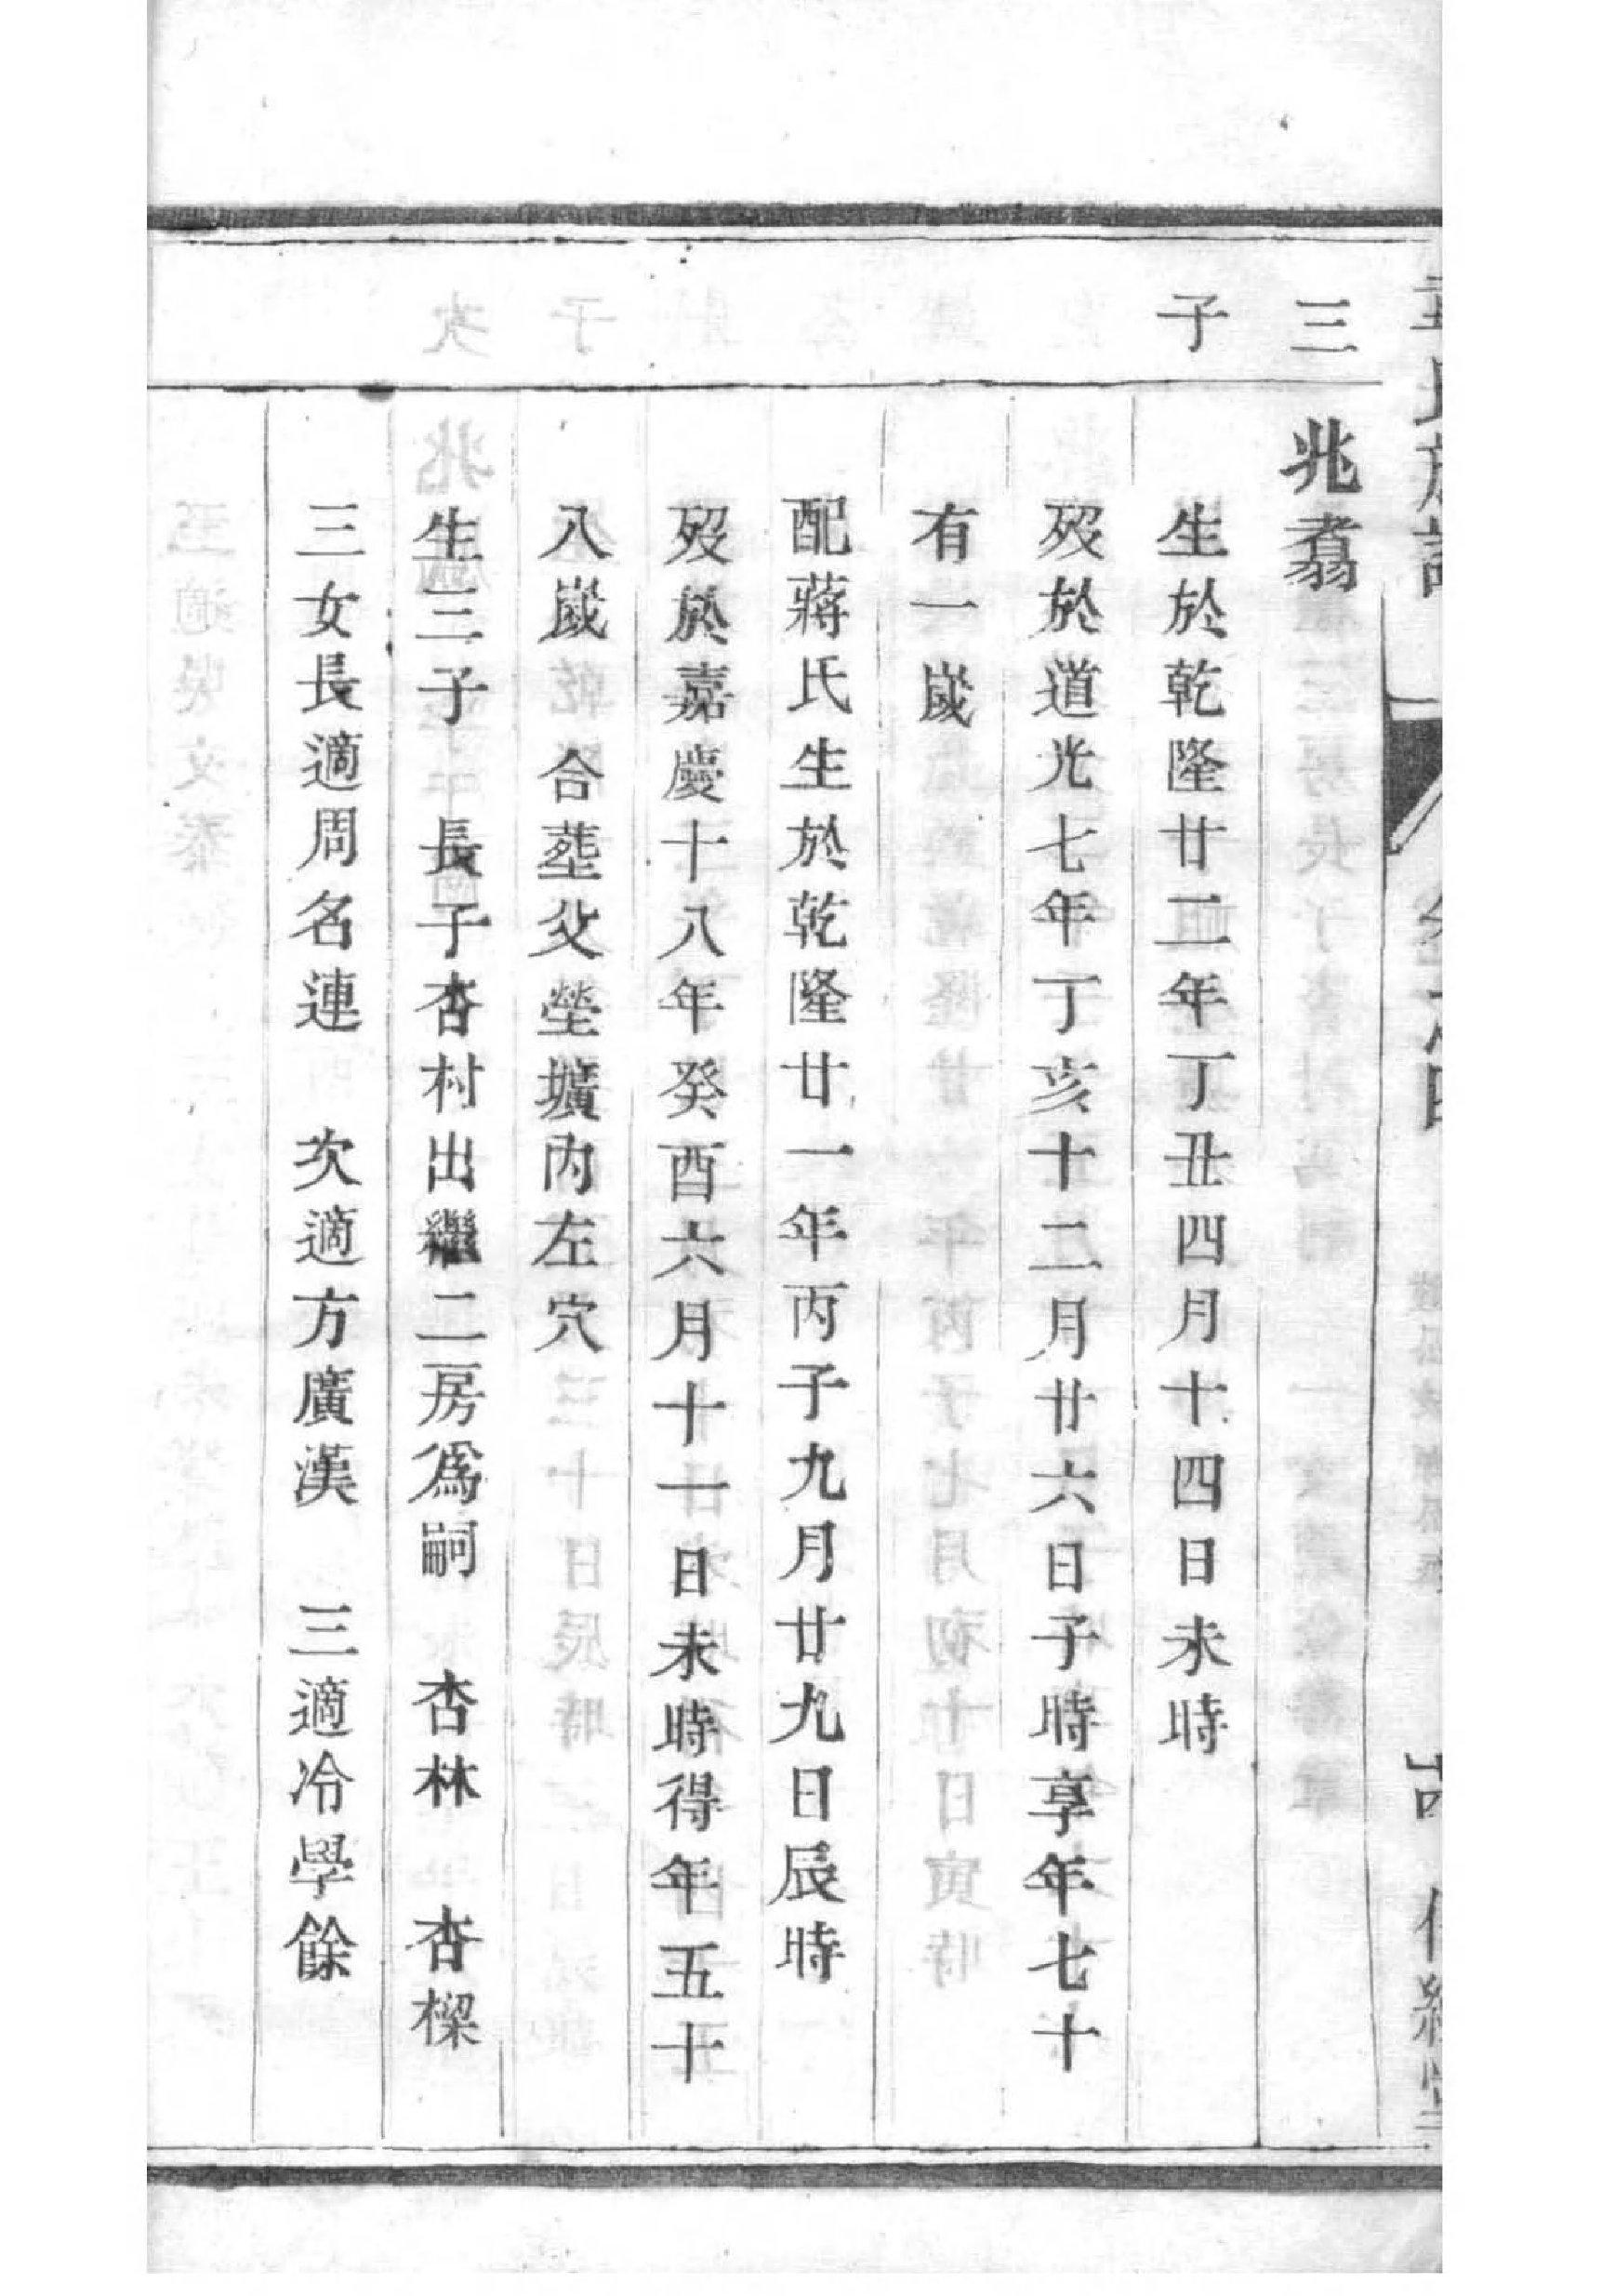 三
子
兆翥
生於乾隆廿二年丁丑四月十四日未時
歿於道光七年丁亥十二月廿六日子時享年七十
有一嵗
配蔣氏生於乾隆廿一年丙子九月廿九日辰時
歿於嘉慶十八年癸酉六月十一日未時得年五十
八嵗 合塟父塋壙內左穴
生三子 長子杏村出繼二房爲嗣 杏林 杏樑
三女長適周名連 次適方廣漢 三適冷學餘